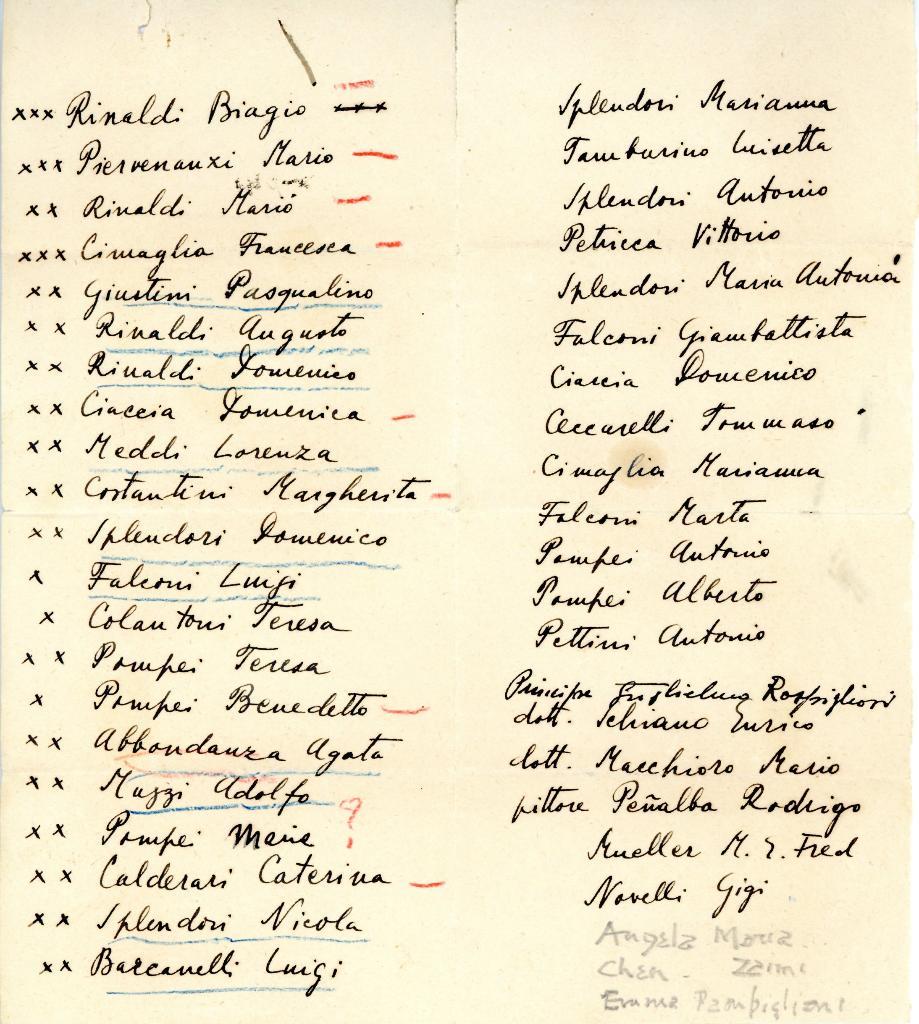 xxx Rinaldi Biagio xxx
xxx Piervenanzi Mario
xx Rinaldi Mario
xxx Cimaglia Francesca
xx Giustini Pasqualino
xx Rinaldi Augusto
xx Rinaldi Domenico
xx Ciaccia Domenica
xx Meddi Lorenza
xx Costantini Margherita
xx Splendori Domenico
x Falconi Luigi
x Colantoni Teresa
xx Pompei Teresa
x Pompei Benedetto
xx Abbondanza Agata
xx Muzzi Adolfo
xx Pompei Maria ?
xx Calderari Caterina
xx Splendori Nicola
xx Barcanelli Luigi
Splendori Marianna
Tamburino Luisetta
Splendori Antonio
Petricca Vittorio
Splendori Maria Antonia
Falconi Giambattista
Ciascia Domenico
Ceccarelli Tommaso
Cimaglia Marianna
Falconi Marta
Pompei Antonio
Pompei Alberto
Pettini Antonio
Principe Guglielmo Rospigliosi
dott. Schiano Enrico
dott. Macchioro Mario
pittore Peñalba Rodrigo
Mueller M. E. Fred
Novelli Gigi
Angela Maria
Chen. Zaimi
Emma Pampiglioni